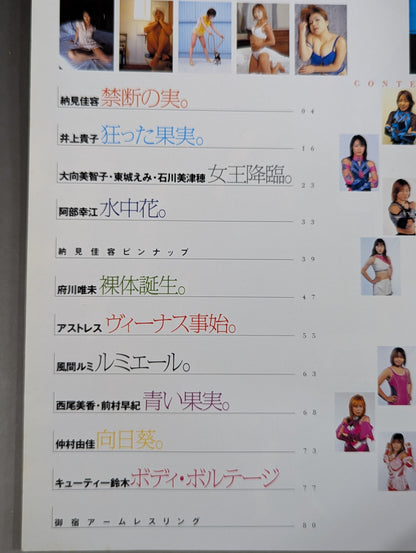 CONTE
納見佳容 禁断の実。 04
井上貴子 狂った果実。 16
大向美智子・東城えみ・石川美津穂 女王降臨。 23
阿部幸江 水中花。 33
納見佳容ピンナップ 39
府川唯未 裸体誕生。 47
アストレス ヴィーナス事始。 55
風間ルミ ルミエール。 63
西尾美香・前村早紀 青い果実。 68
仲村由佳 向日葵。 73
キューティー鈴木 ボディ・ボルテージ 77
御宿アームレスリング 80